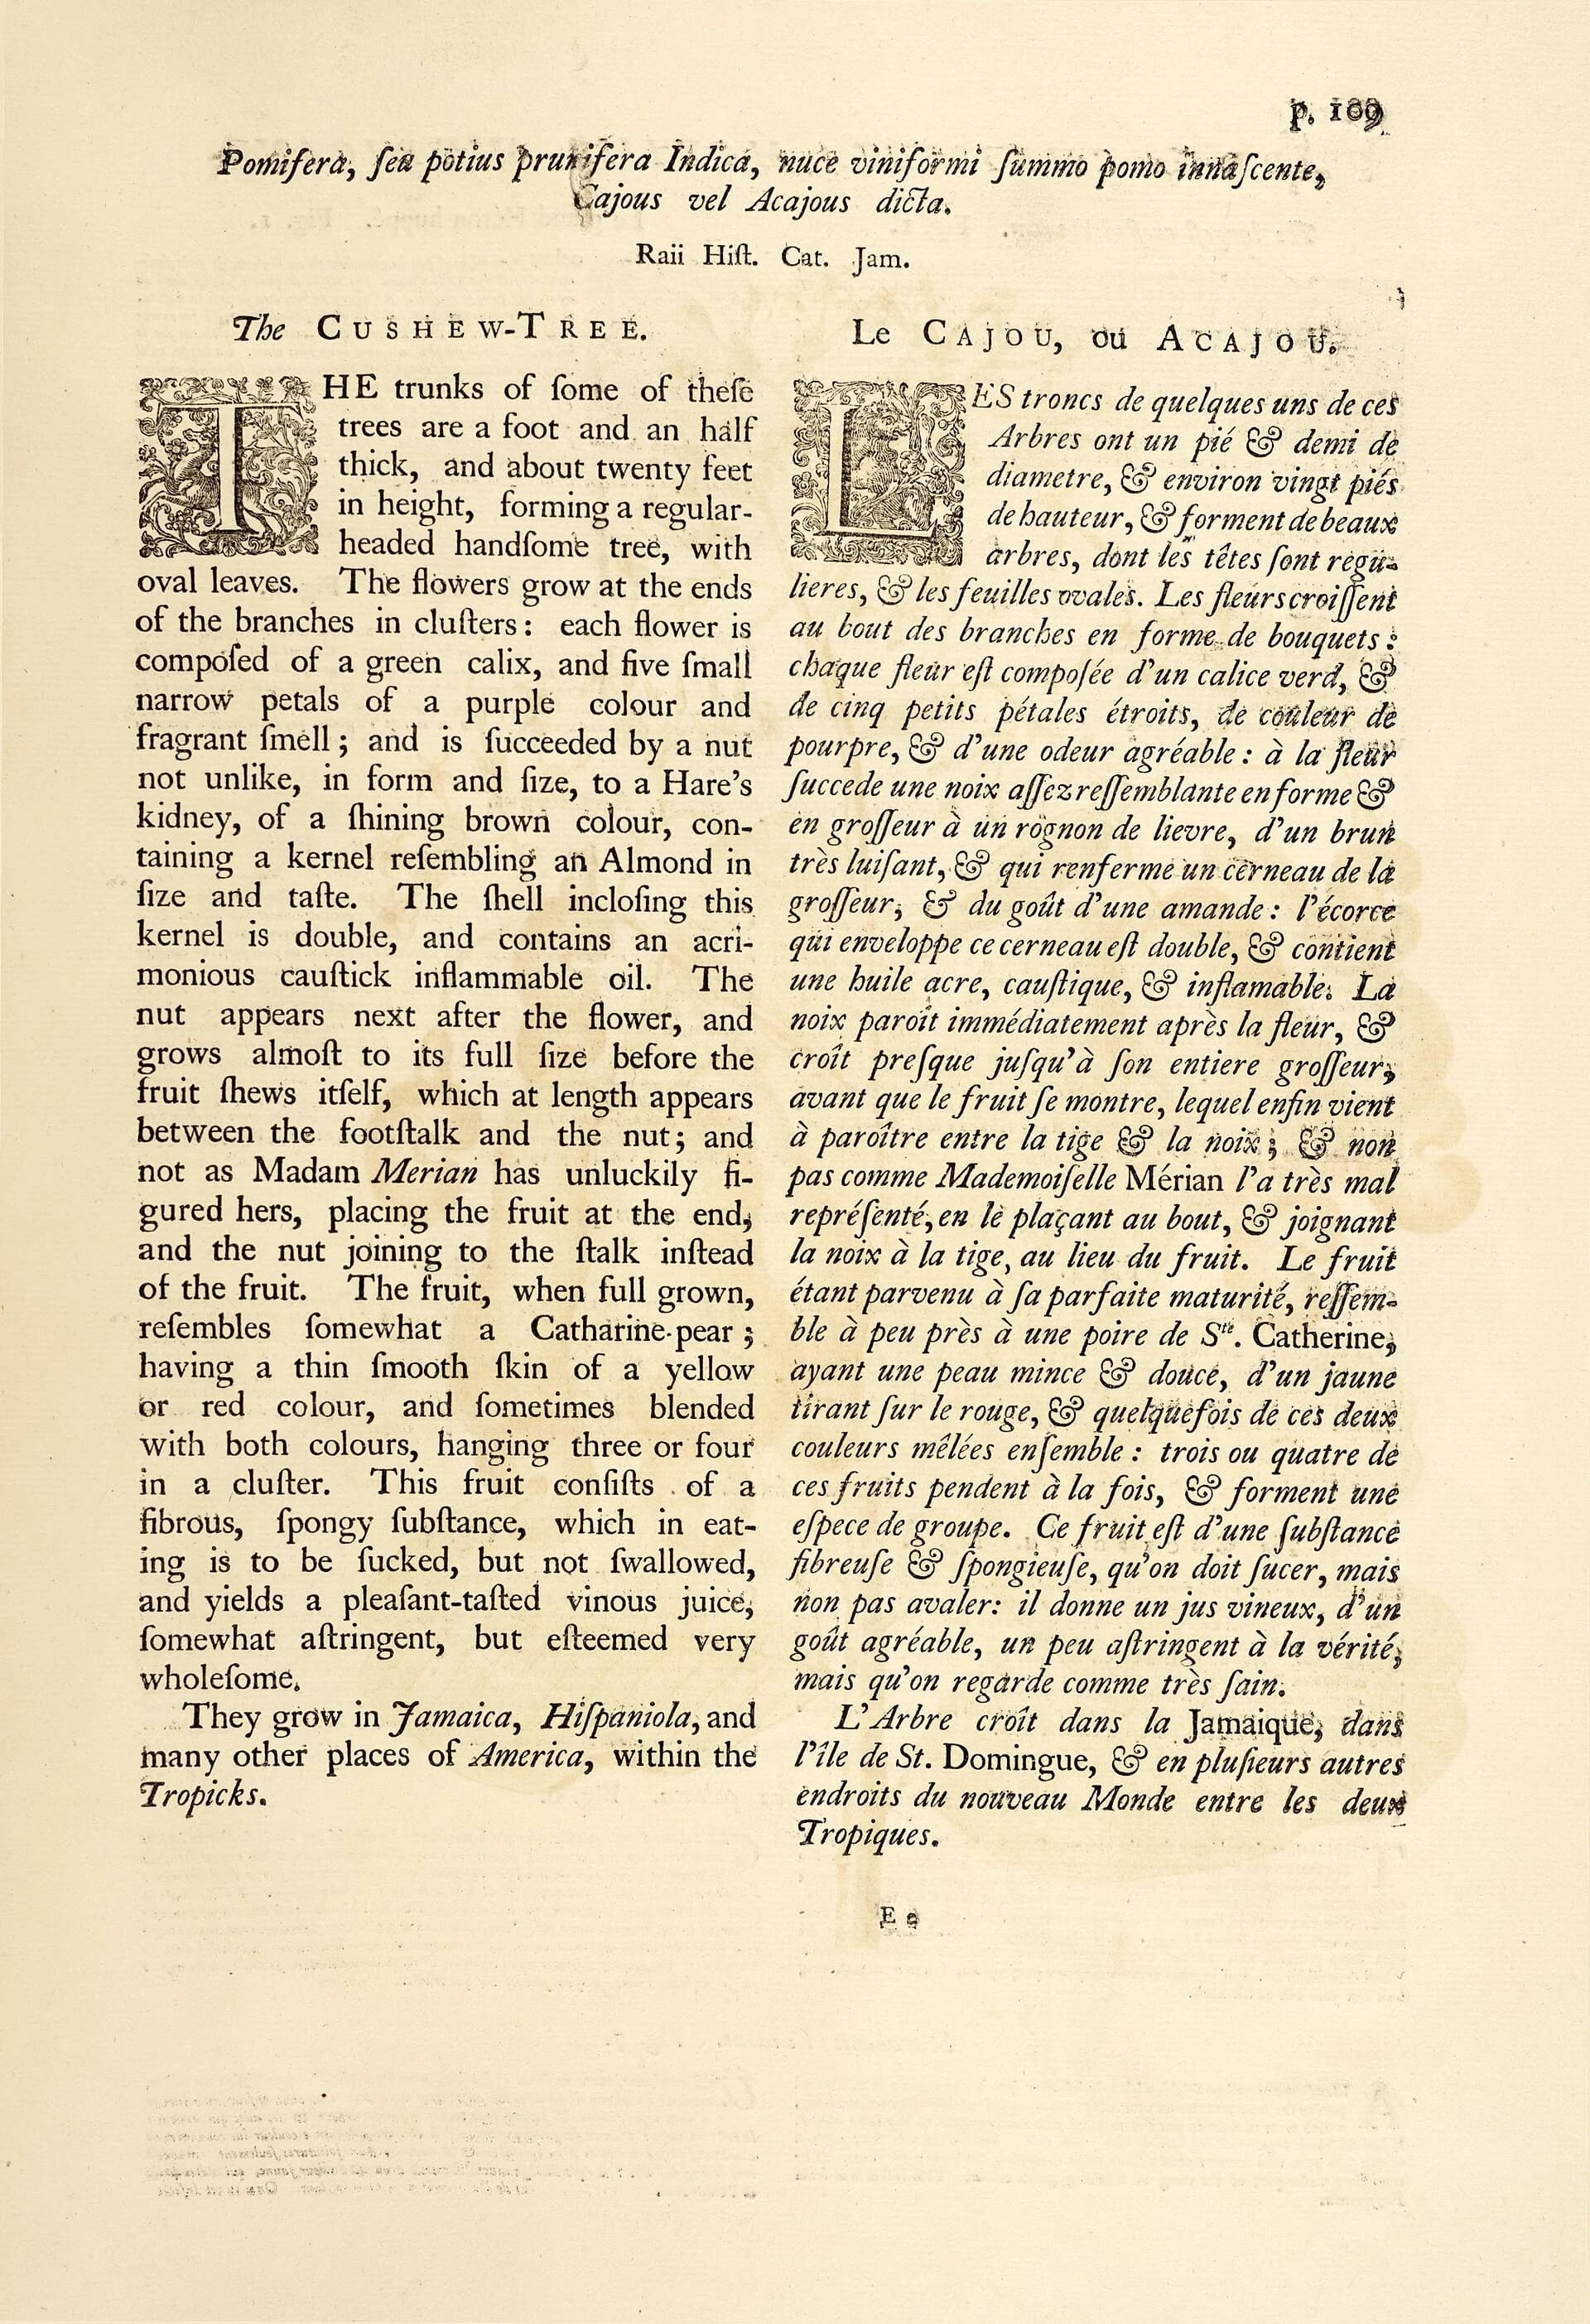 p. 109
Pomifera, ſeu potius prunifera Indica, nuce viniformi ſummo pomo innaſcente,
Cajous vel Acajous dicta.
Raii Hiſt. Cat. Jam.
The CUSHEW-TREE.
THE trunks of ſome of theſe
trees are a foot and an half
thick, and about twenty feet
in height, forming a regular-
headed handſome tree, with
oval leaves. The flowers grow at the ends
of the branches in cluſters: each flower is
compoſed of a green calix, and five ſmall
narrow petals of a purple colour and
fragrant ſmell; and is ſucceeded by a nut
not unlike, in form and ſize, to a Hare's
kidney, of a ſhining brown colour, con-
taining a kernel reſembling an Almond in
ſize and taſte. The ſhell incloſing this
kernel is double, and contains an acri-
monious cauſtick inflammable oil. The
nut appears next after the flower, and
grows almoſt to its full ſize before the
fruit ſhews itſelf, which at length appears
between the footſtalk and the nut; and
not as Madam Merian has unluckily fi-
gured hers, placing the fruit at the end,
and the nut joining to the ſtalk inſtead
of the fruit. The fruit, when full grown,
reſembles ſomewhat a Catharine-pear;
having a thin ſmooth ſkin of a yellow
or red colour, and ſometimes blended
with both colours, hanging three or four
in a cluſter. This fruit conſiſts of a
fibrous, ſpongy ſubſtance, which in eat-
ing is to be ſucked, but not ſwallowed,
and yields a pleaſant-taſted vinous juice,
ſomewhat aſtringent, but eſteemed very
wholeſome.
They grow in Jamaica, Hiſpaniola, and
many other places of America, within the
Tropicks.
Le CAJOU, ou ACAJOU.
LES troncs de quelques uns de ces
Arbres ont un pié & demi de
diametre, & environ vingt piés
de hauteur, & forment de beaux
arbres, dont les têtes ſont régu-
lieres, & les feuilles ovales. Les fleurs croiſſent
au bout des branches en forme de bouquets:
chaque fleur eſt compoſée d'un calice verd, &
de cinq petits pétales étroits, de couleur de
pourpre, & d'une odeur agréable: à la fleur
ſuccede une noix aſſez reſſemblante en forme &
en groſſeur à un rognon de lievre, d'un brun
très luiſant, & qui renferme un cerneau de la
groſſeur, & du goût d'une amande: l'écorce
qui enveloppe ce cerneau eſt double, & contient
une huile acre, cauſtique, & inflamable. La
noix paroît immédiatement après la fleur, &
croît preſque juſqu'à ſon entiere groſſeur,
avant que le fruit ſe montre, lequel enfin vient
à paroître entre la tige & la noix; & non
pas comme Mademoiſelle Mérian l'a très mal
repréſenté, en le plaçant au bout, & joignant
la noix à la tige, au lieu du fruit. Le fruit
étant parvenu à ſa parfaite maturité, reſſem-
ble à peu près à une poire de Ste. Catherine,
ayant une peau mince & douce, d'un jaune
tirant ſur le rouge, & quelquefois de ces deux
couleurs mêlées enſemble: trois ou quatre de
ces fruits pendent à la fois, & forment une
eſpece de groupe. Ce fruit eſt d'une ſubſtance
fibreuſe & ſpongieuſe, qu'on doit ſucer, mais
non pas avaler: il donne un jus vineux, d'un
goût agréable, un peu aſtringent à la vérité,
mais qu'on regarde comme très ſain.
L'Arbre croît dans la Jamaique, dans
l'île de St. Domingue, & en pluſieurs autres
endroits du nouveau Monde entre les deux
Tropiques.
E e